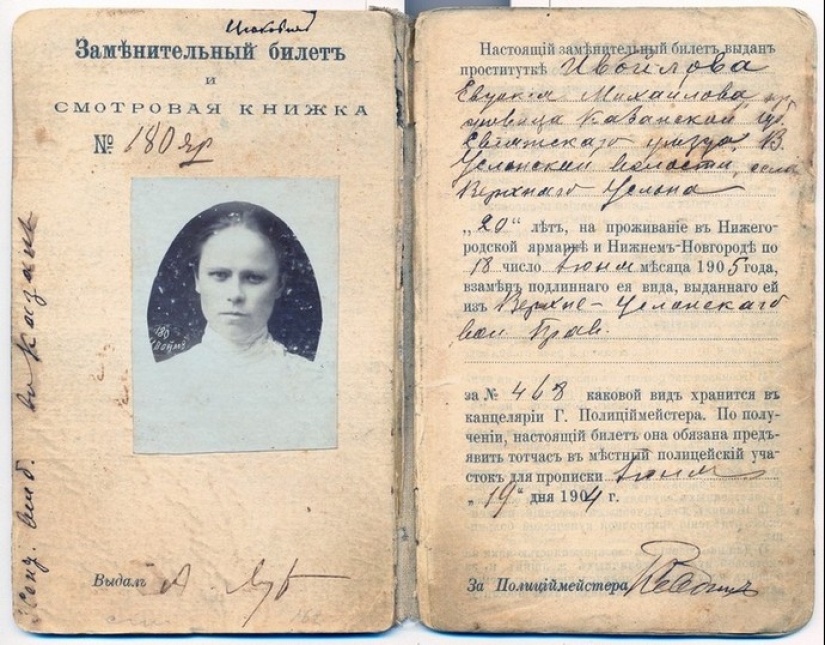 Замѣнительный билетъ
и
СМОТРОВАЯ КНИЖКА
№ 180 яр
180
Выдалъ
Настоящій замѣнительный билетъ выданъ
проституткѣ Ивойлова
Михайлова
Казанской губ.
уѣзда, В.
Услонской волости, села
Верхняго Услона
„20“ лѣтъ, на проживаніе въ Нижего-
родской ярмаркѣ и Нижнемъ-Новгородѣ по
18 число Іюня мѣсяца 1905 года,
взамѣнъ подлиннаго ея вида, выданнаго ей
изъ Верхне-Услонскаго
вол. Прав.
за № 468 каковой видъ хранится въ
канцеляріи Г. Полиціймейстера. По полу-
ченіи, настоящій билетъ она обязана предъ-
явить тотчасъ въ мѣстный полицейскій уча-
стокъ для прописки Іюня
„19“ дня 1904 г.
За Полиціймейстера
въ Казань